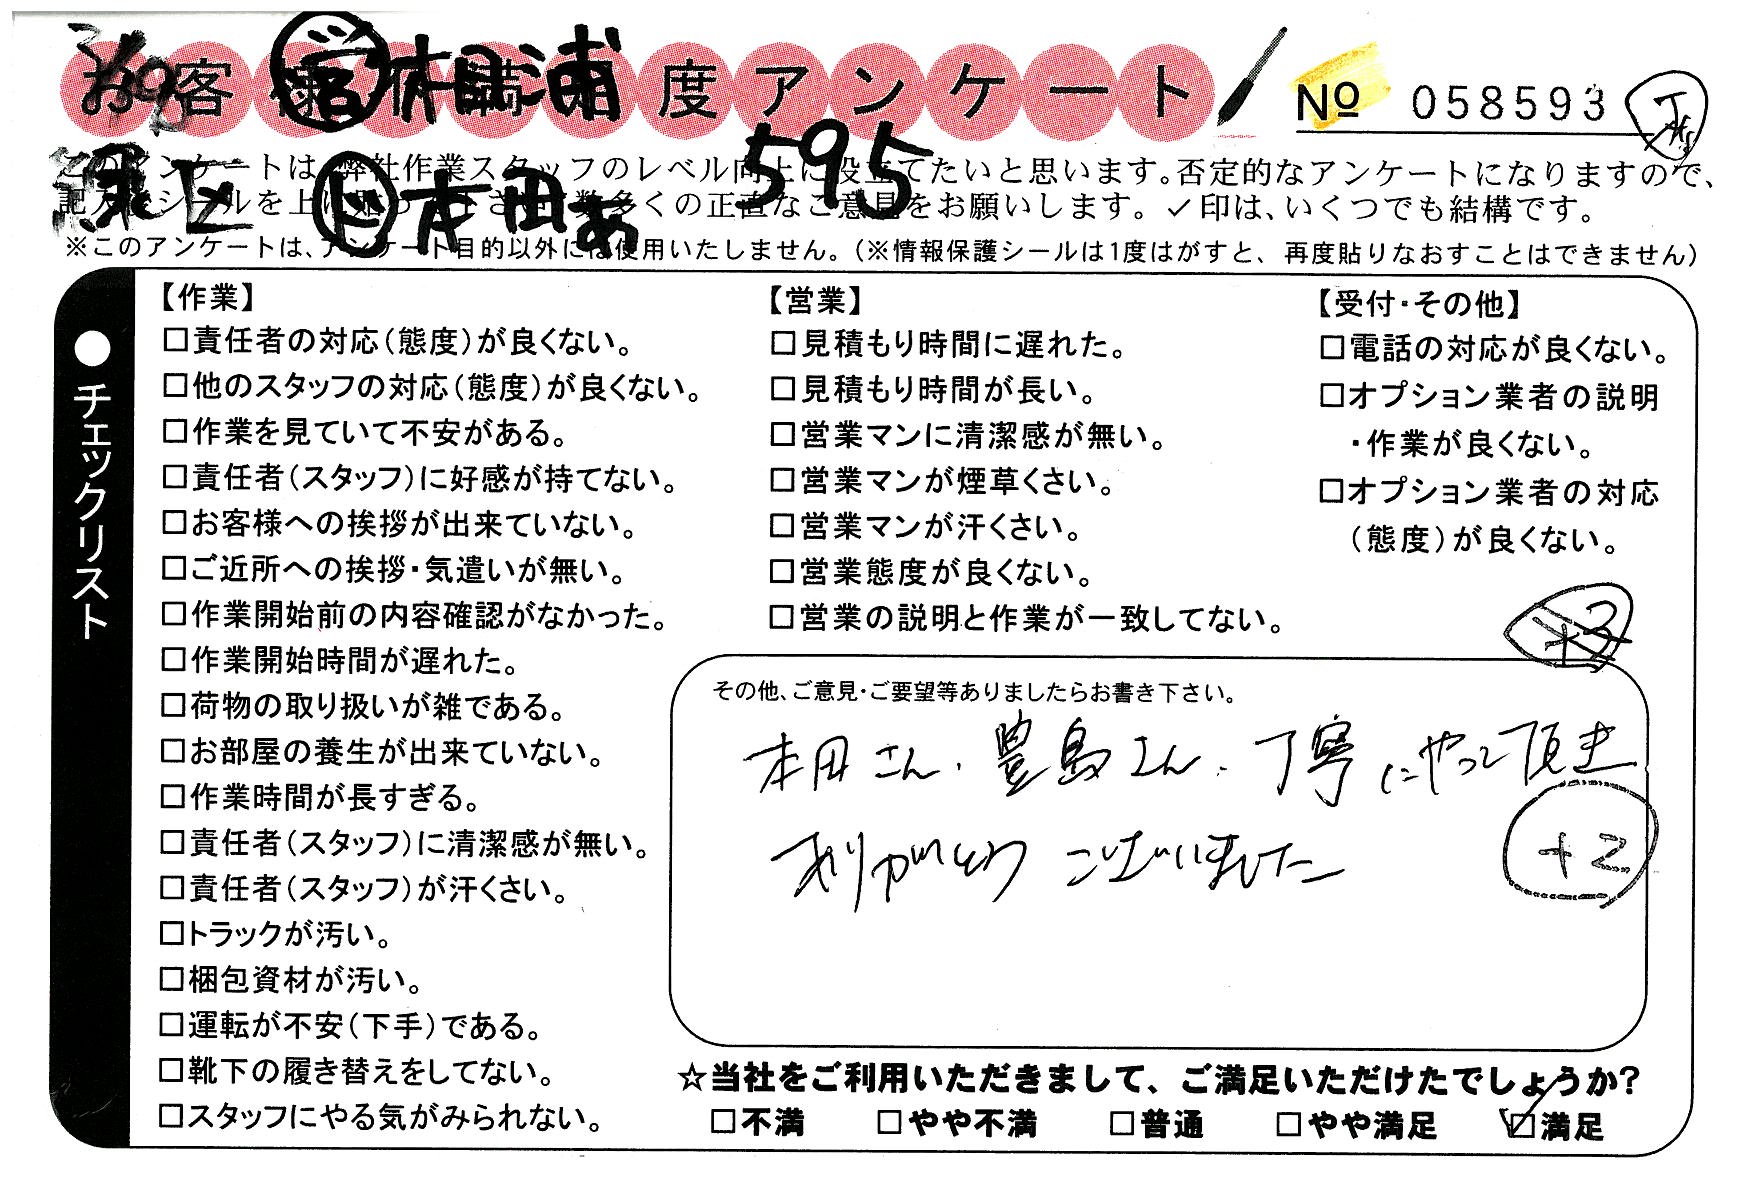 お客様満足度アンケート
No 058593
595
このアンケートは、弊社作業スタッフのレベル向上に役立てたいと思います。否定的なアンケートになりますので、
記入後シールを上に貼って下さい。数多くの正直なご意見をお願いします。✓印は、いくつでも結構です。
本田
※このアンケートは、アンケート目的以外には使用いたしません。(※情報保護シールは1度はがすと、再度貼りなおすことはできません)
●チェックリスト
【作業】
□責任者の対応(態度)が良くない。
□他のスタッフの対応(態度)が良くない。
□作業を見ていて不安がある。
□責任者(スタッフ)に好感が持てない。
□お客様への挨拶が出来ていない。
□ご近所への挨拶・気遣いが無い。
□作業開始前の内容確認がなかった。
□作業開始時間が遅れた。
□荷物の取り扱いが雑である。
□お部屋の養生が出来ていない。
□作業時間が長すぎる。
□責任者(スタッフ)に清潔感が無い。
□責任者(スタッフ)が汗くさい。
□トラックが汚い。
□梱包資材が汚い。
□運転が不安(下手)である。
□靴下の履き替えをしてない。
□スタッフにやる気がみられない。
【営業】
□見積もり時間に遅れた。
□見積もり時間が長い。
□営業マンに清潔感が無い。
□営業マンが煙草くさい。
□営業マンが汗くさい。
□営業態度が良くない。
□営業の説明と作業が一致してない。
【受付・その他】
□電話の対応が良くない。
□オプション業者の説明
・作業が良くない。
□オプション業者の対応
(態度)が良くない。
+3
その他、ご意見・ご要望等ありましたらお書き下さい。
本田さん、豊島さん、丁寧にやって頂き
ありがとうございました
+2
☆当社をご利用いただきまして、ご満足いただけたでしょうか?
□不満 □やや不満 □普通 □やや満足 ☑満足